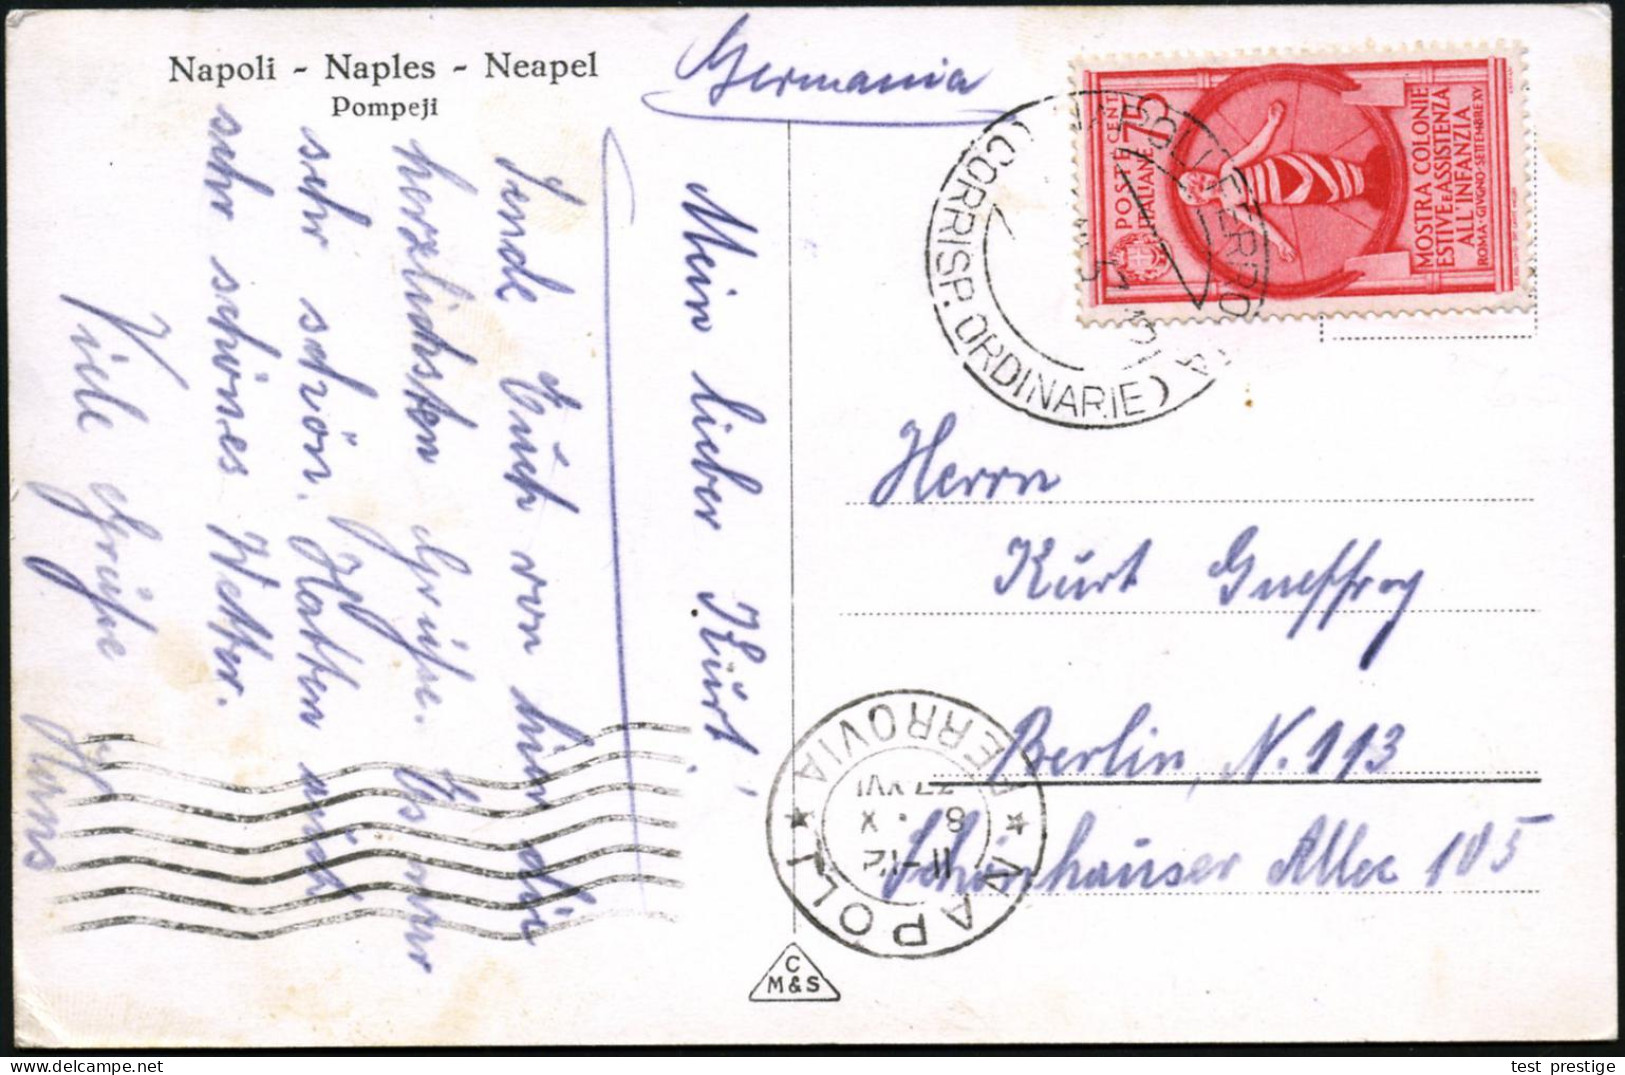 Napoli - Naples - Neapel
Pompeji
Germania
Mein lieber Kurt!
Sende Euch von hier die
herzlichsten Grüße. Es war
sehr schön. Hatten auch
sehr schönes Wetter.
Viele Grüße
Hans
POSTE ITALIANE
CENT 75
MOSTRA COLONIE
ESTIVE E ASSISTENZA
ALL'INFANZIA
ROMA - GIUGNO - SETTEMBRE XV
NAPOLI FERROVIA
(CORRISP. ORDINARIE)
Herrn
Kurt Gueffroy
Berlin, N. 113
Schönhauser Allee 105
NAPOLI FERROVIA
11-12
8 . X
37 XVI
C
M&S
test_prestige